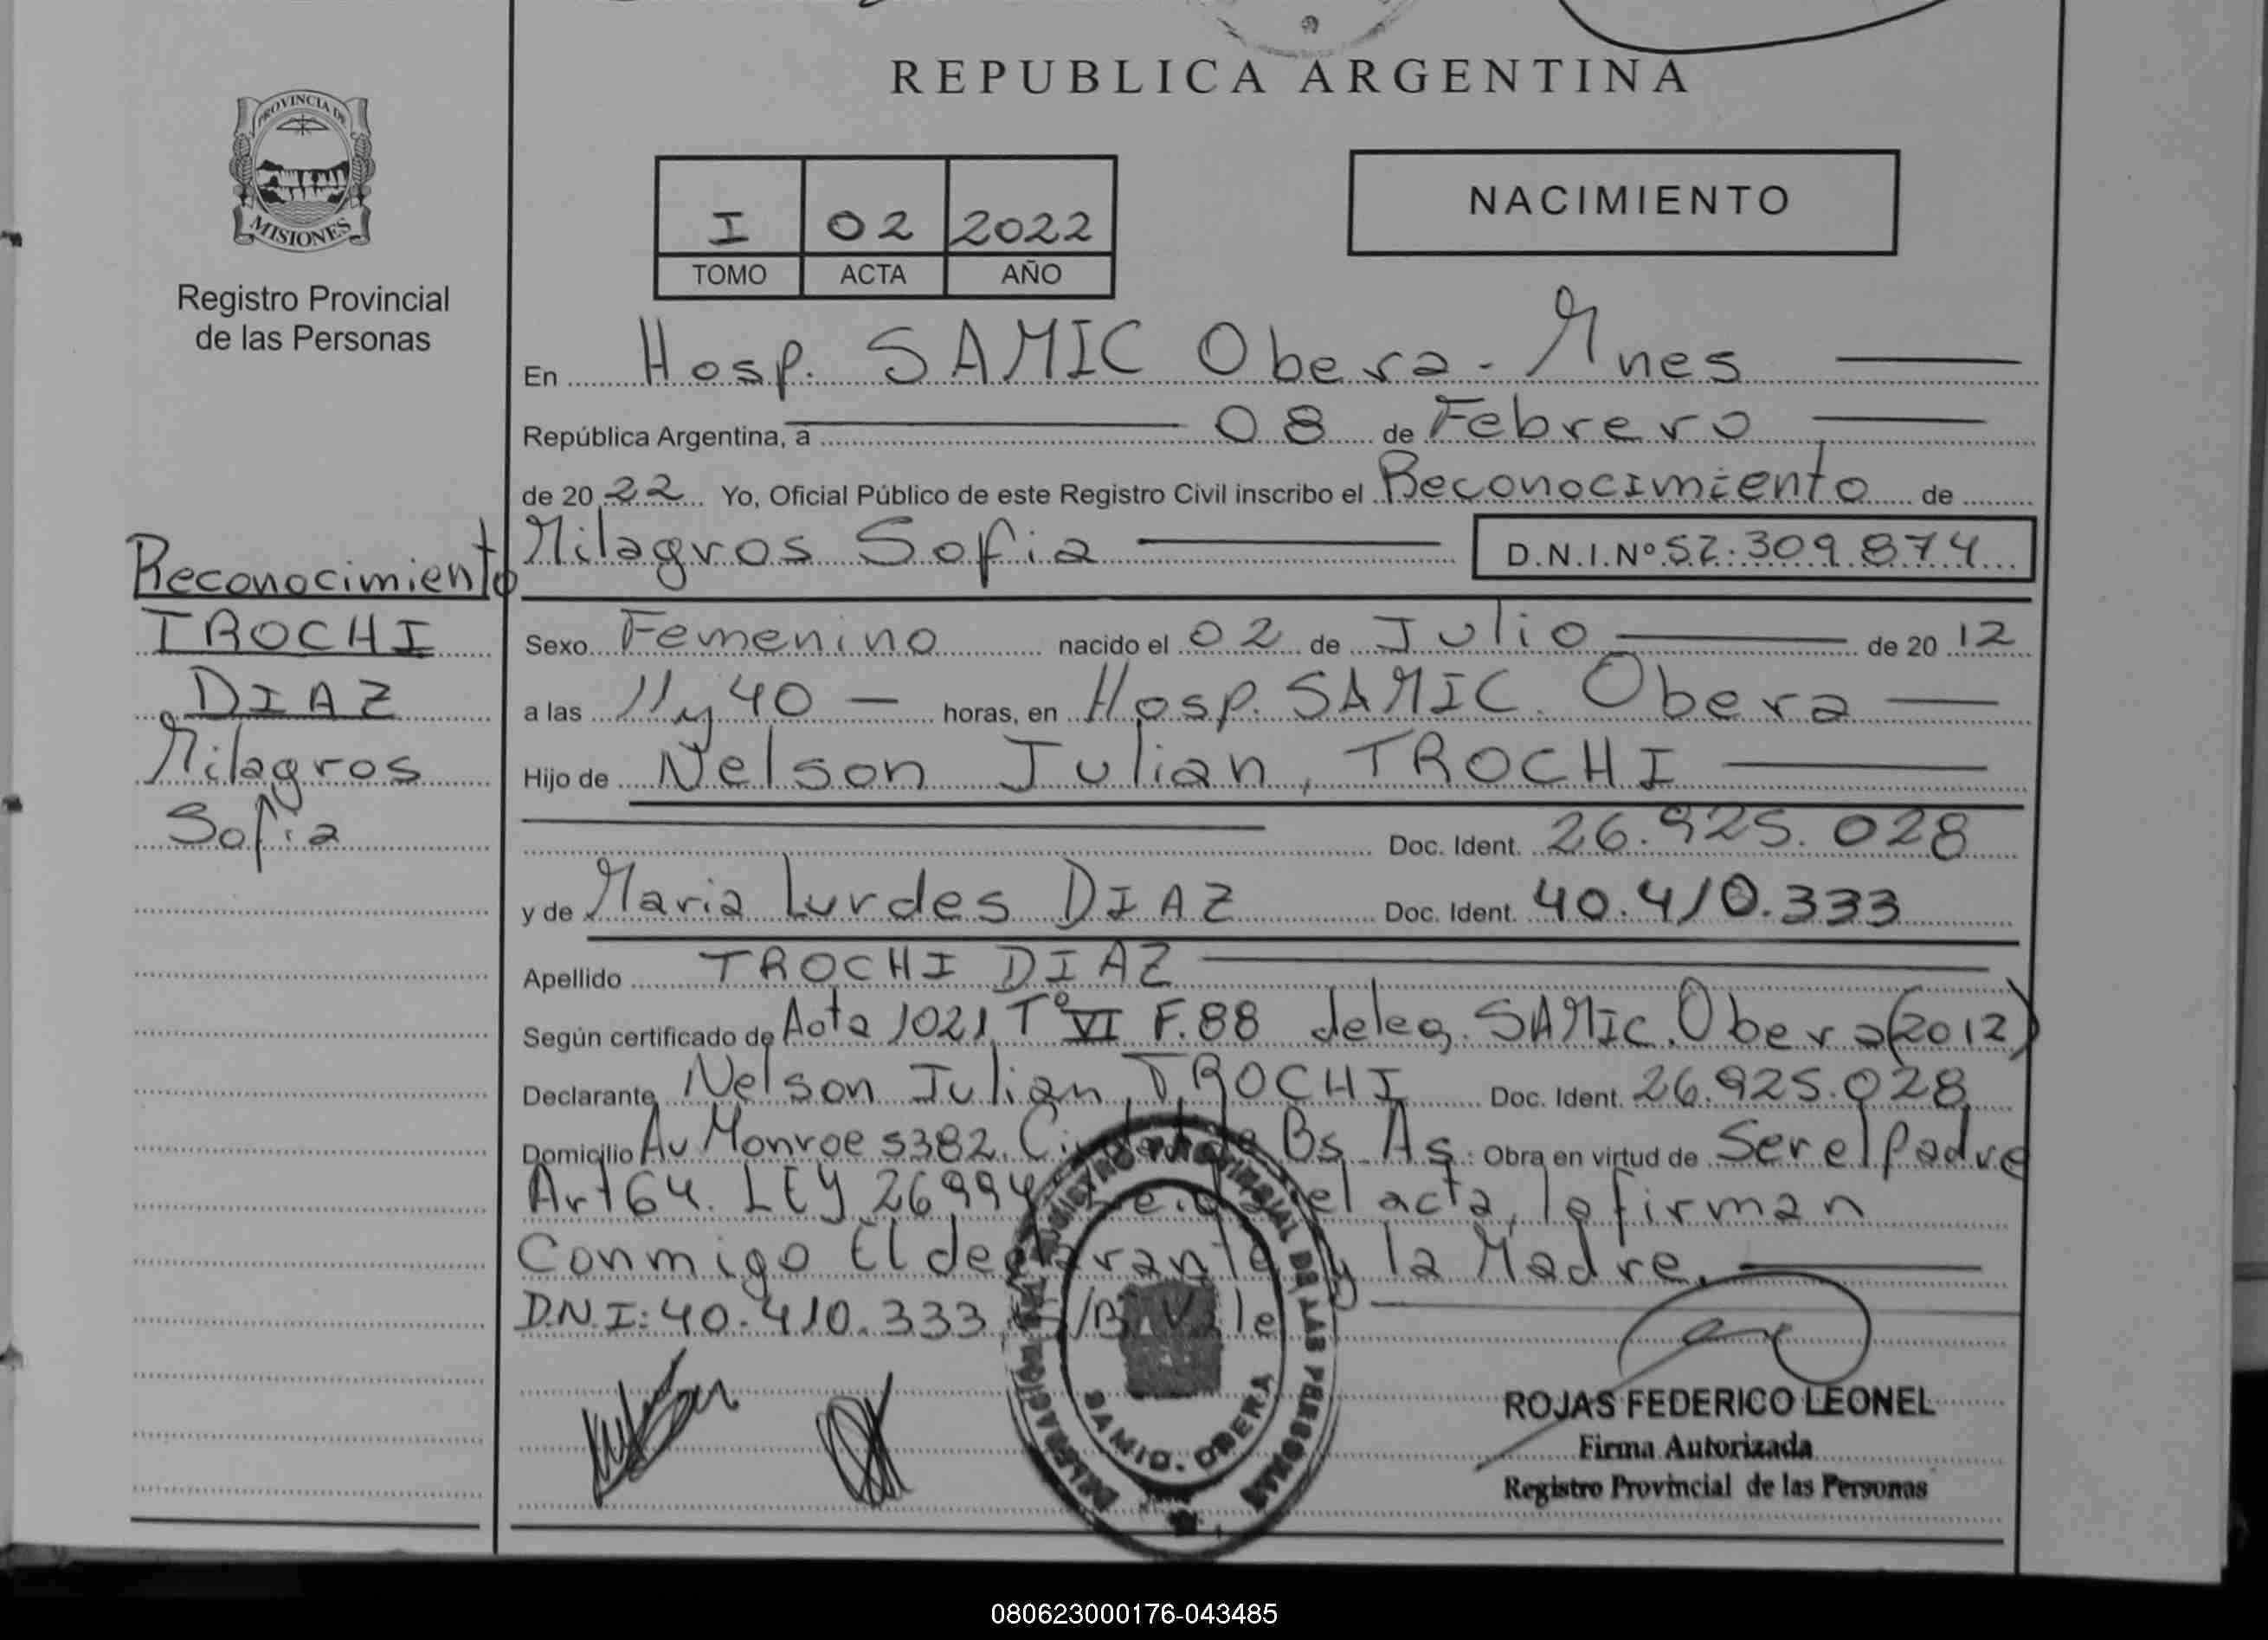 REPUBLICA ARGENTINA
PROVINCIA DE
MISIONES
Registro Provincial
de las Personas
I 02 2022
TOMO ACTA AÑO
NACIMIENTO
En Hosp. SAMIC Obera - Mnes
República Argentina, a 08 de Febrero
de 20 22 Yo, Oficial Público de este Registro Civil inscribo el Reconocimiento de
Milagros Sofia D.N.I.Nº 52.309.874
Reconocimiento
TROCHI
DIAZ
Milagros
Sofia
Sexo Femenino nacido el 02 de Julio de 20 12
a las 11 y 40 horas, en Hosp. SAMIC. Obera
Hijo de Nelson Julian, TROCHI
Doc. Ident. 26.925.028
y de Maria Lurdes DIAZ Doc. Ident. 40.410.333
Apellido TROCHI DIAZ
Según certificado de Acta 1021 Tº VI F. 88 deleg. SAMIC. Obera (2012)
Declarante Nelson Julian, TROCHI Doc. Ident. 26.925.028
Domicilio Av Monroe 5382. Bs. As. Obra en virtud de Ser el Padre
Art 64. LEY 26994 el acta, la firman
Conmigo El declarante y la Madre.
D.N.I: 40.410.333
REGISTRO PROVINCIAL DE LAS PERSONAS
DELEGACION
SAMIC. OBERA
ROJAS FEDERICO LEONEL
Firma Autorizada
Registro Provincial de las Personas
080623000176-043485